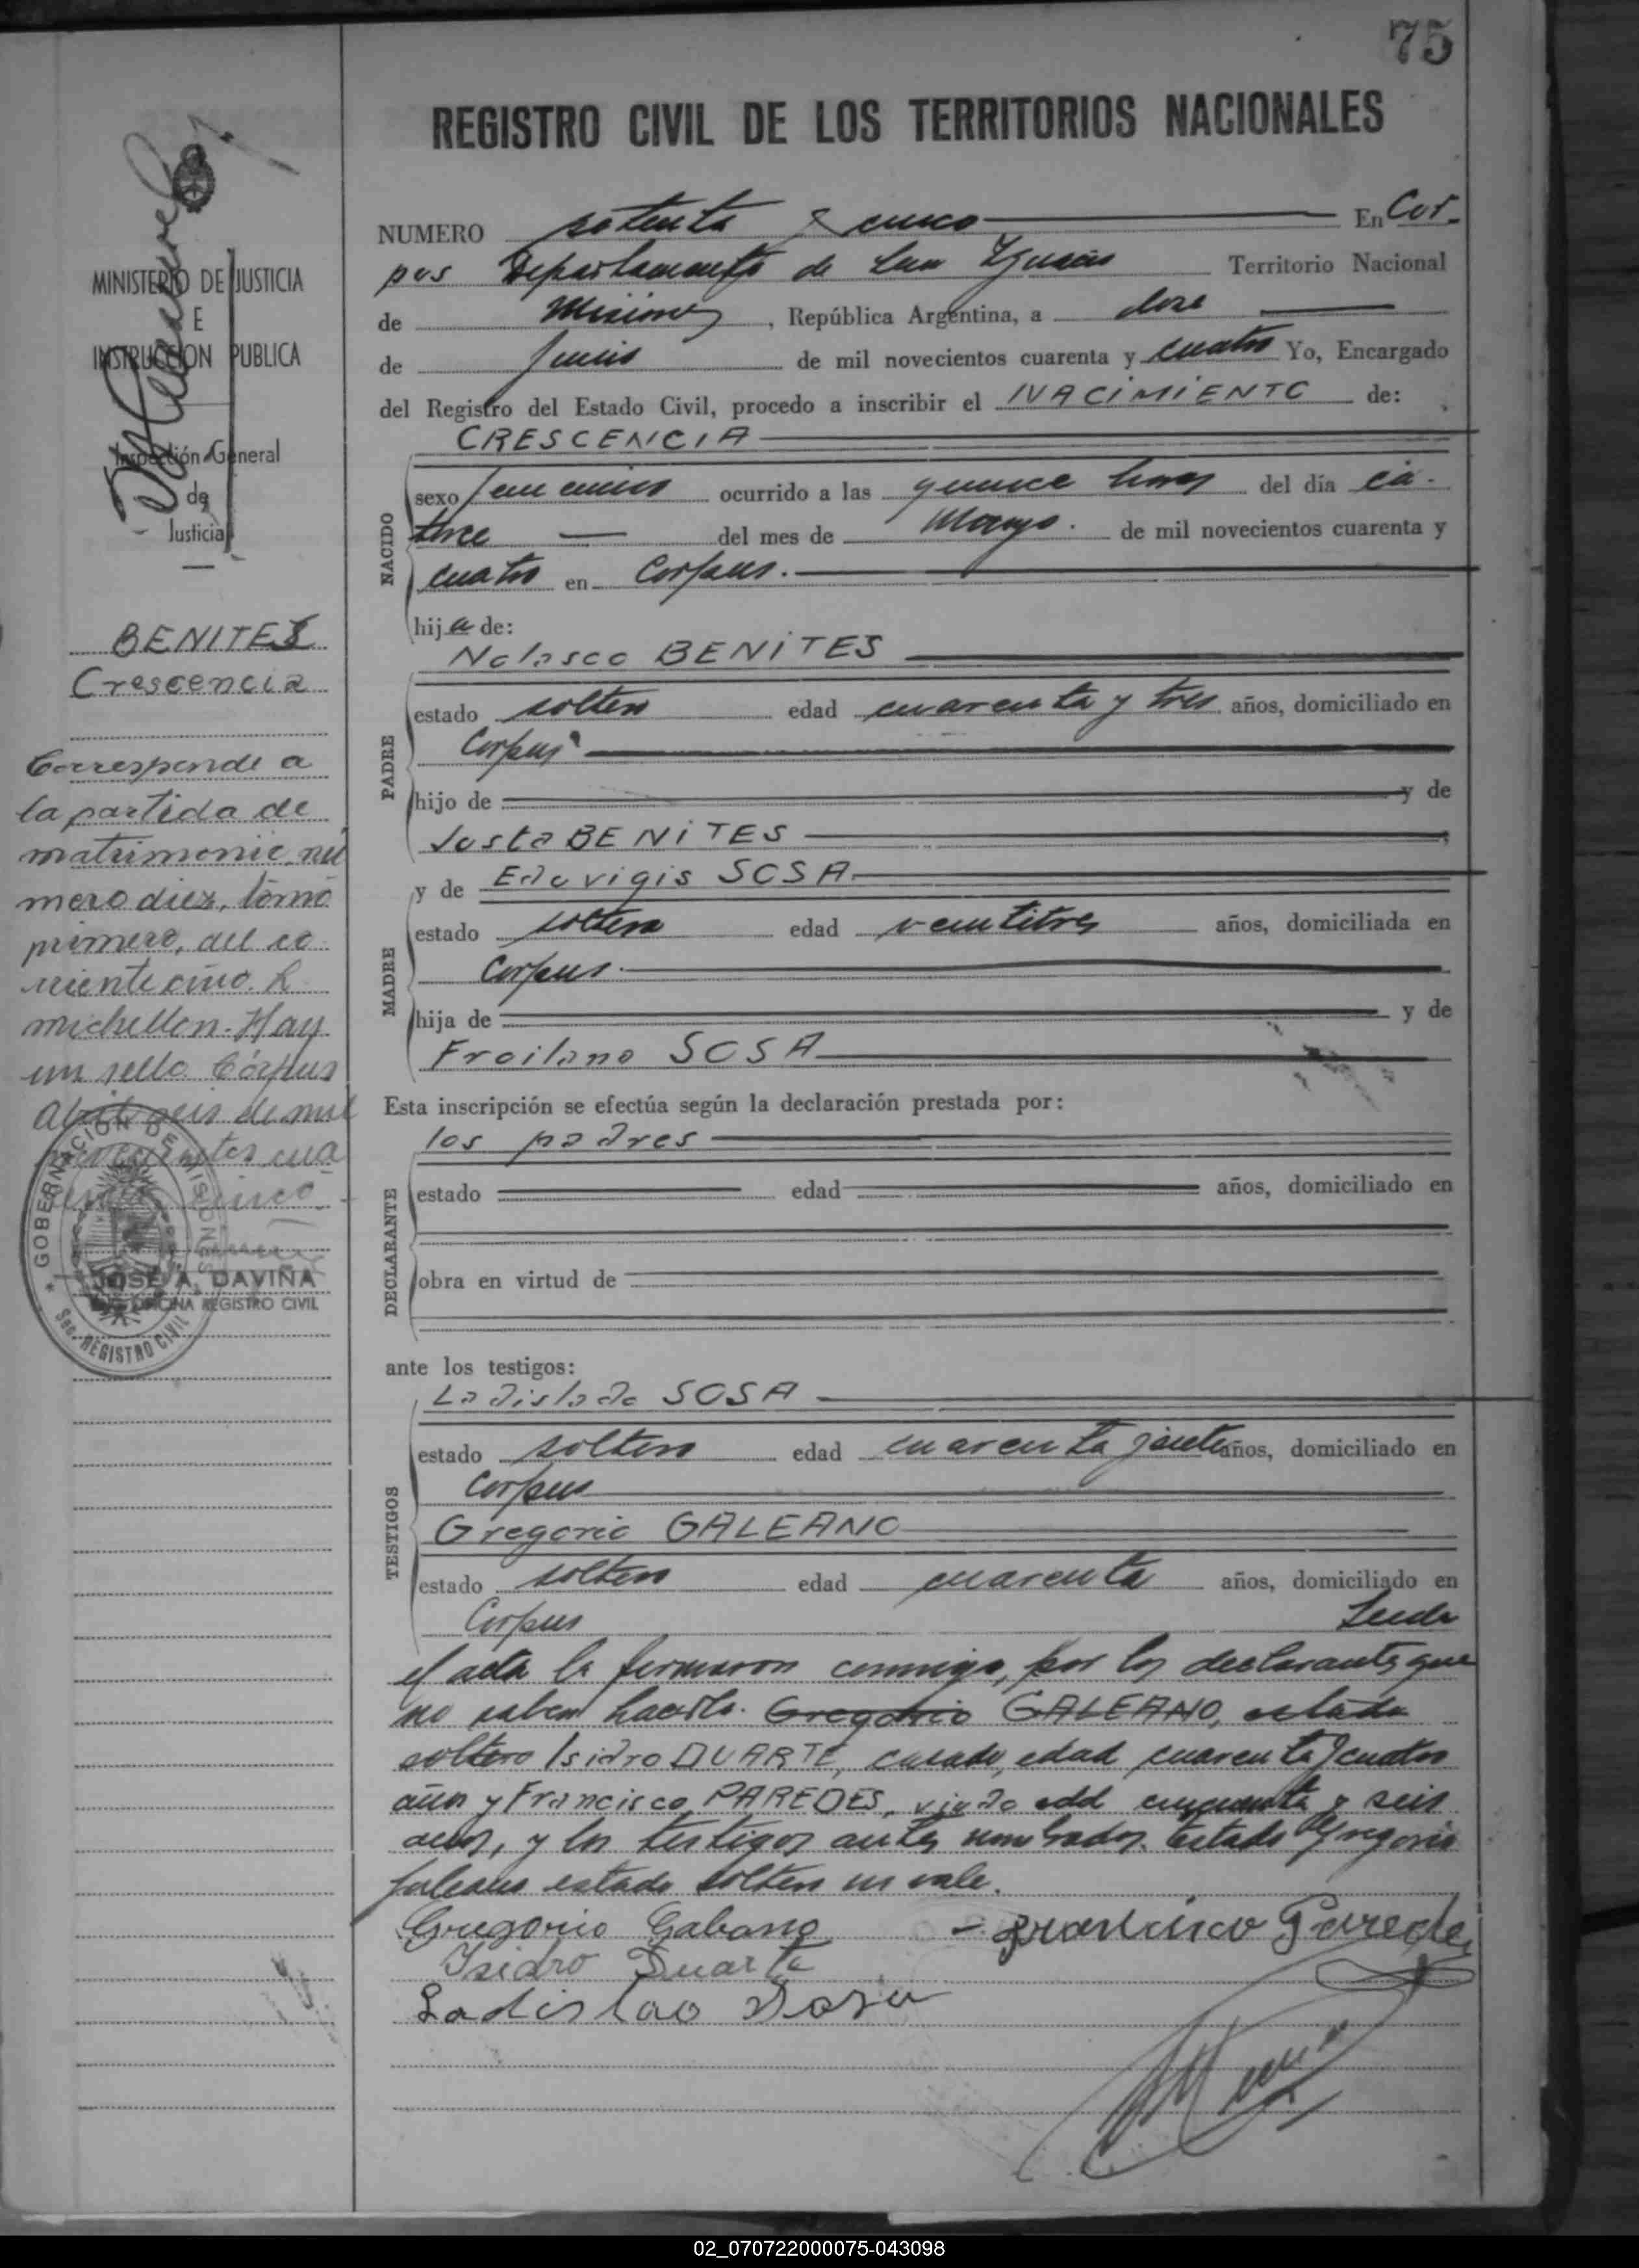 75
REGISTRO CIVIL DE LOS TERRITORIOS NACIONALES
MINISTERIO DE JUSTICIA
E
INSTRUCCION PUBLICA
Inspección General
de
Justicia
BENITES
Crescencia
Corresponde a
la partida de
matrimonio nú
mero diez, tomo
primero, del co
rriente año. R.
michellon. Hay
un sello Córpus
Abril seis de mil
novecientos cua
renta cinco.
GOBERNACION DE MISIONES
Sec. REGISTRO CIVIL
JOSE A. DAVIÑA
OFICINA REGISTRO CIVIL
NUMERO setenta y cinco En Cor-
pus Departamento de San Ignacio Territorio Nacional
de Misiones, República Argentina, a doce
de Junio de mil novecientos cuarenta y cuatro Yo, Encargado
del Registro del Estado Civil, procedo a inscribir el NACIMIENTO de:
CRESCENCIA
NACIDO
sexo femenino ocurrido a las quince horas del día ca-
torce del mes de Mayo. de mil novecientos cuarenta y
cuatro en Corpus.
hija de:
Nolasco BENITES
PADRE
estado soltero edad cuarenta y tres años, domiciliado en
Corpus
hijo de y de
Justa BENITES
y de Eduvigis SOSA
MADRE
estado soltera edad veintitres años, domiciliada en
Corpus.
hija de y de
Froilana SOSA
Esta inscripción se efectúa según la declaración prestada por:
los padres
DECLARANTE
estado edad años, domiciliado en
obra en virtud de
ante los testigos:
Ladislado SOSA
TESTIGOS
estado soltero edad cuarenta y siete años, domiciliado en
Corpus
Gregorio GALEANO
estado soltero edad cuarenta años, domiciliado en
Corpus Leida
el acta la firmaron conmigo, por los declarantes que
no saben hacerlo. Gregorio GALEANO, estado
soltero Isidro DUARTE, casado, edad cuarenta y cuatro
años y Francisco PAREDES, viudo edad cincuenta y seis
años, y los testigos antes nombrados. Testado de Gregorio
Galeano estado soltero no vale.
Gregorio Gabano - Francisco Parede
Isidro Duarte
Ladislao Sosa
02_070722000075-043098